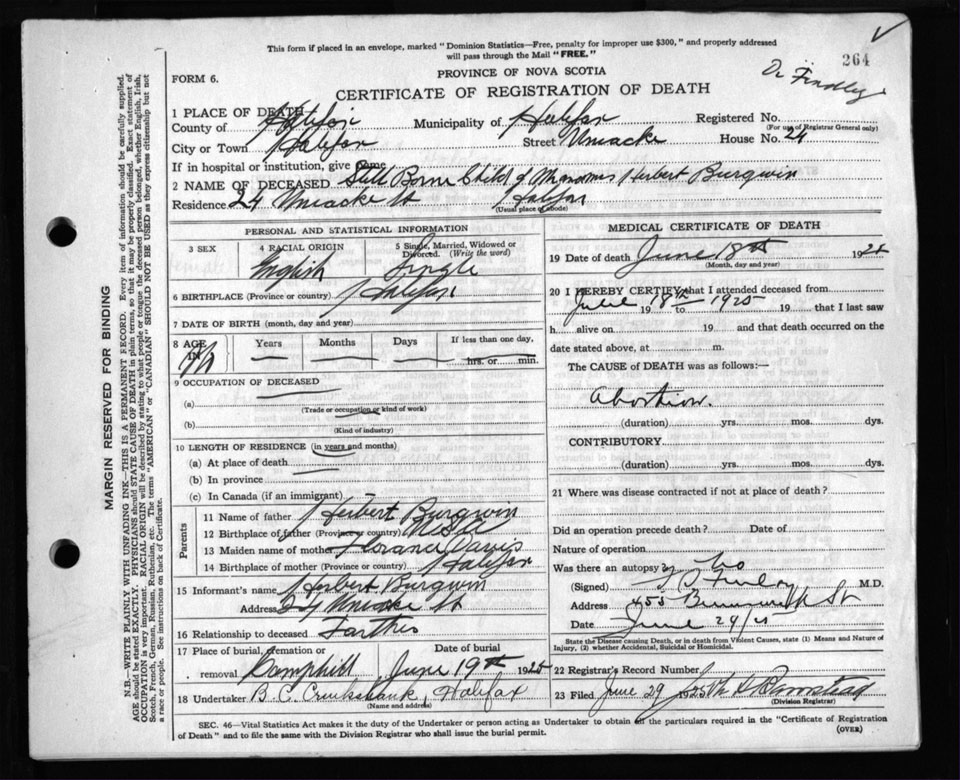 This form if placed in an envelope, marked "Dominion Statistics—Free, penalty for improper use $300," and properly addressed
will pass through the Mail "FREE."
264
PROVINCE OF NOVA SCOTIA
FORM 6.
CERTIFICATE OF REGISTRATION OF DEATH
Dr Findlay
1 PLACE OF DEATH
County of Halifax Municipality of Halifax Registered No.
(For use of Registrar General only)
City or Town Halifax Street Uniacke House No. 24
If in hospital or institution, give name
2 NAME OF DECEASED Still Borne Child of Mr & Mrs Herbert Burgwin
Residence 24 Uniacke St Halifax
(Usual place of abode)
PERSONAL AND STATISTICAL INFORMATION
3 SEX
4 RACIAL ORIGIN English
5 Single, Married, Widowed or Divorced. (Write the word) Single
6 BIRTHPLACE (Province or country) Halifax
7 DATE OF BIRTH (month, day and year)
8 AGE IN Years Months Days If less than one day, hrs. or min.
9 OCCUPATION OF DECEASED
(a)
(Trade or occupation or kind of work)
(b)
(Kind of industry)
10 LENGTH OF RESIDENCE (in years and months)
(a) At place of death
(b) In province
(c) In Canada (if an immigrant)
Parents
11 Name of father Herbert Burgwin
12 Birthplace of father (Province or country)
13 Maiden name of mother Florance Davis
14 Birthplace of mother (Province or country) Halifax
15 Informant's name Herbert Burgwin
Address 24 Uniacke St
16 Relationship to deceased Farther
17 Place of burial, cremation or removal Camphill
Date of burial June 19th 1925
18 Undertaker B. C. Cruikshank, Halifax
(Name and address)
MEDICAL CERTIFICATE OF DEATH
19 Date of death June 18th 1925
(Month, day and year)
20 I HEREBY CERTIFY that I attended deceased from
June 18th 1925
19 to 19 that I last saw
h alive on 19 and that death occurred on the
date stated above, at m.
The CAUSE of DEATH was as follows:—
Abortion.
(duration) yrs. mos. dys.
CONTRIBUTORY
(duration) yrs. mos. dys.
21 Where was disease contracted if not at place of death?
Did an operation precede death? Date of
Nature of operation
Was there an autopsy? No
(Signed) M.D.
Address 455 Brunswick St
Date June 29/25
State the Disease causing Death, or in death from Violent Causes, state (1) Means and Nature of
Injury, (2) whether Accidental, Suicidal or Homicidal.
22 Registrar's Record Number
23 Filed June 29 1925
(Division Registrar)
SEC. 46—Vital Statistics Act makes it the duty of the Undertaker or person acting as Undertaker to obtain all the particulars required in the "Certificate of Registration
of Death" and to file the same with the Division Registrar who shall issue the burial permit.
(OVER)
MARGIN RESERVED FOR BINDING
N.B.—WRITE PLAINLY WITH UNFADING INK—THIS IS A PERMANENT RECORD. Every item of information should be carefully supplied.
AGE should be stated EXACTLY. PHYSICIANS should STATE CAUSE OF DEATH in plain terms, so that it may be properly classified. Exact statement of
OCCUPATION is very important. RACIAL ORIGIN will be described by stating to what people or tongue the deceased person belonged, whether English, Irish,
Scotch, French, German, Russian, Ruthenian, etc. The terms "AMERICAN" or "CANADIAN" SHOULD NOT BE USED as they express citizenship but not
a race or people. See instructions on back of Certificate.